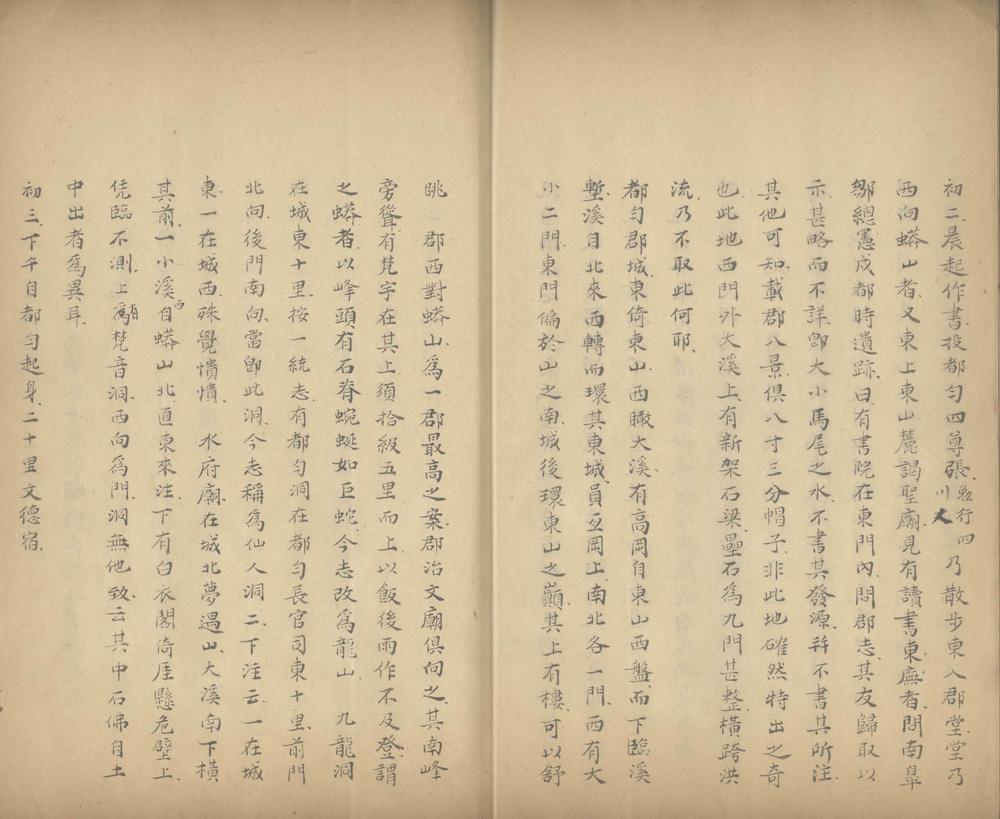 初二晨起作書投都勻四尊張敬行四川人乃散步東入郡堂堂乃
西向蟒山者又東上東山麓謁聖廟見有讀書東廡者問南皐
鄒總憲戍都時遺跡曰有書院在東門內問郡志其友歸取以
示甚略而不詳卽大小馬尾之水不書其發源并不書其所注
其他可知載郡八景俱八寸三分帽子非此地確然特出之奇
也此地西門外大溪上有新架石梁壘石為九門甚整橫跨洪
流乃不取此何耶
都勻郡城東倚東山西瞰大溪有高岡自東山西盤而下臨溪
塹溪自北來西轉而環其東城員亙岡上南北各一門西有大
小二門東門偏於山之南城後環東山之巔其上有樓可以舒
眺 郡西對蟒山為一郡最高之案郡治文廟俱向之其南峰
旁聳有梵宇在其上須拾級五里而上以飯後雨作不及登謂
之蟒者以峰頭有石脊蜿蜒如巨蛇今志改為龍山 九龍洞
在城東十里按一統志有都勻洞在都勻長官司東十里前門
北向後門南向當卽此洞今志稱為仙人洞二下注云一在城
東一在城西殊覺憒憒 水府廟在城北夢遇山大溪南下橫
其前一小溪西自蟒山北直東來注下有白衣閣倚厓懸危壁上
凭臨不測上有為梵音洞西向為門洞無他致云其中石佛自土
中出者為異耳
初三下午自都勻起身二十里文德宿